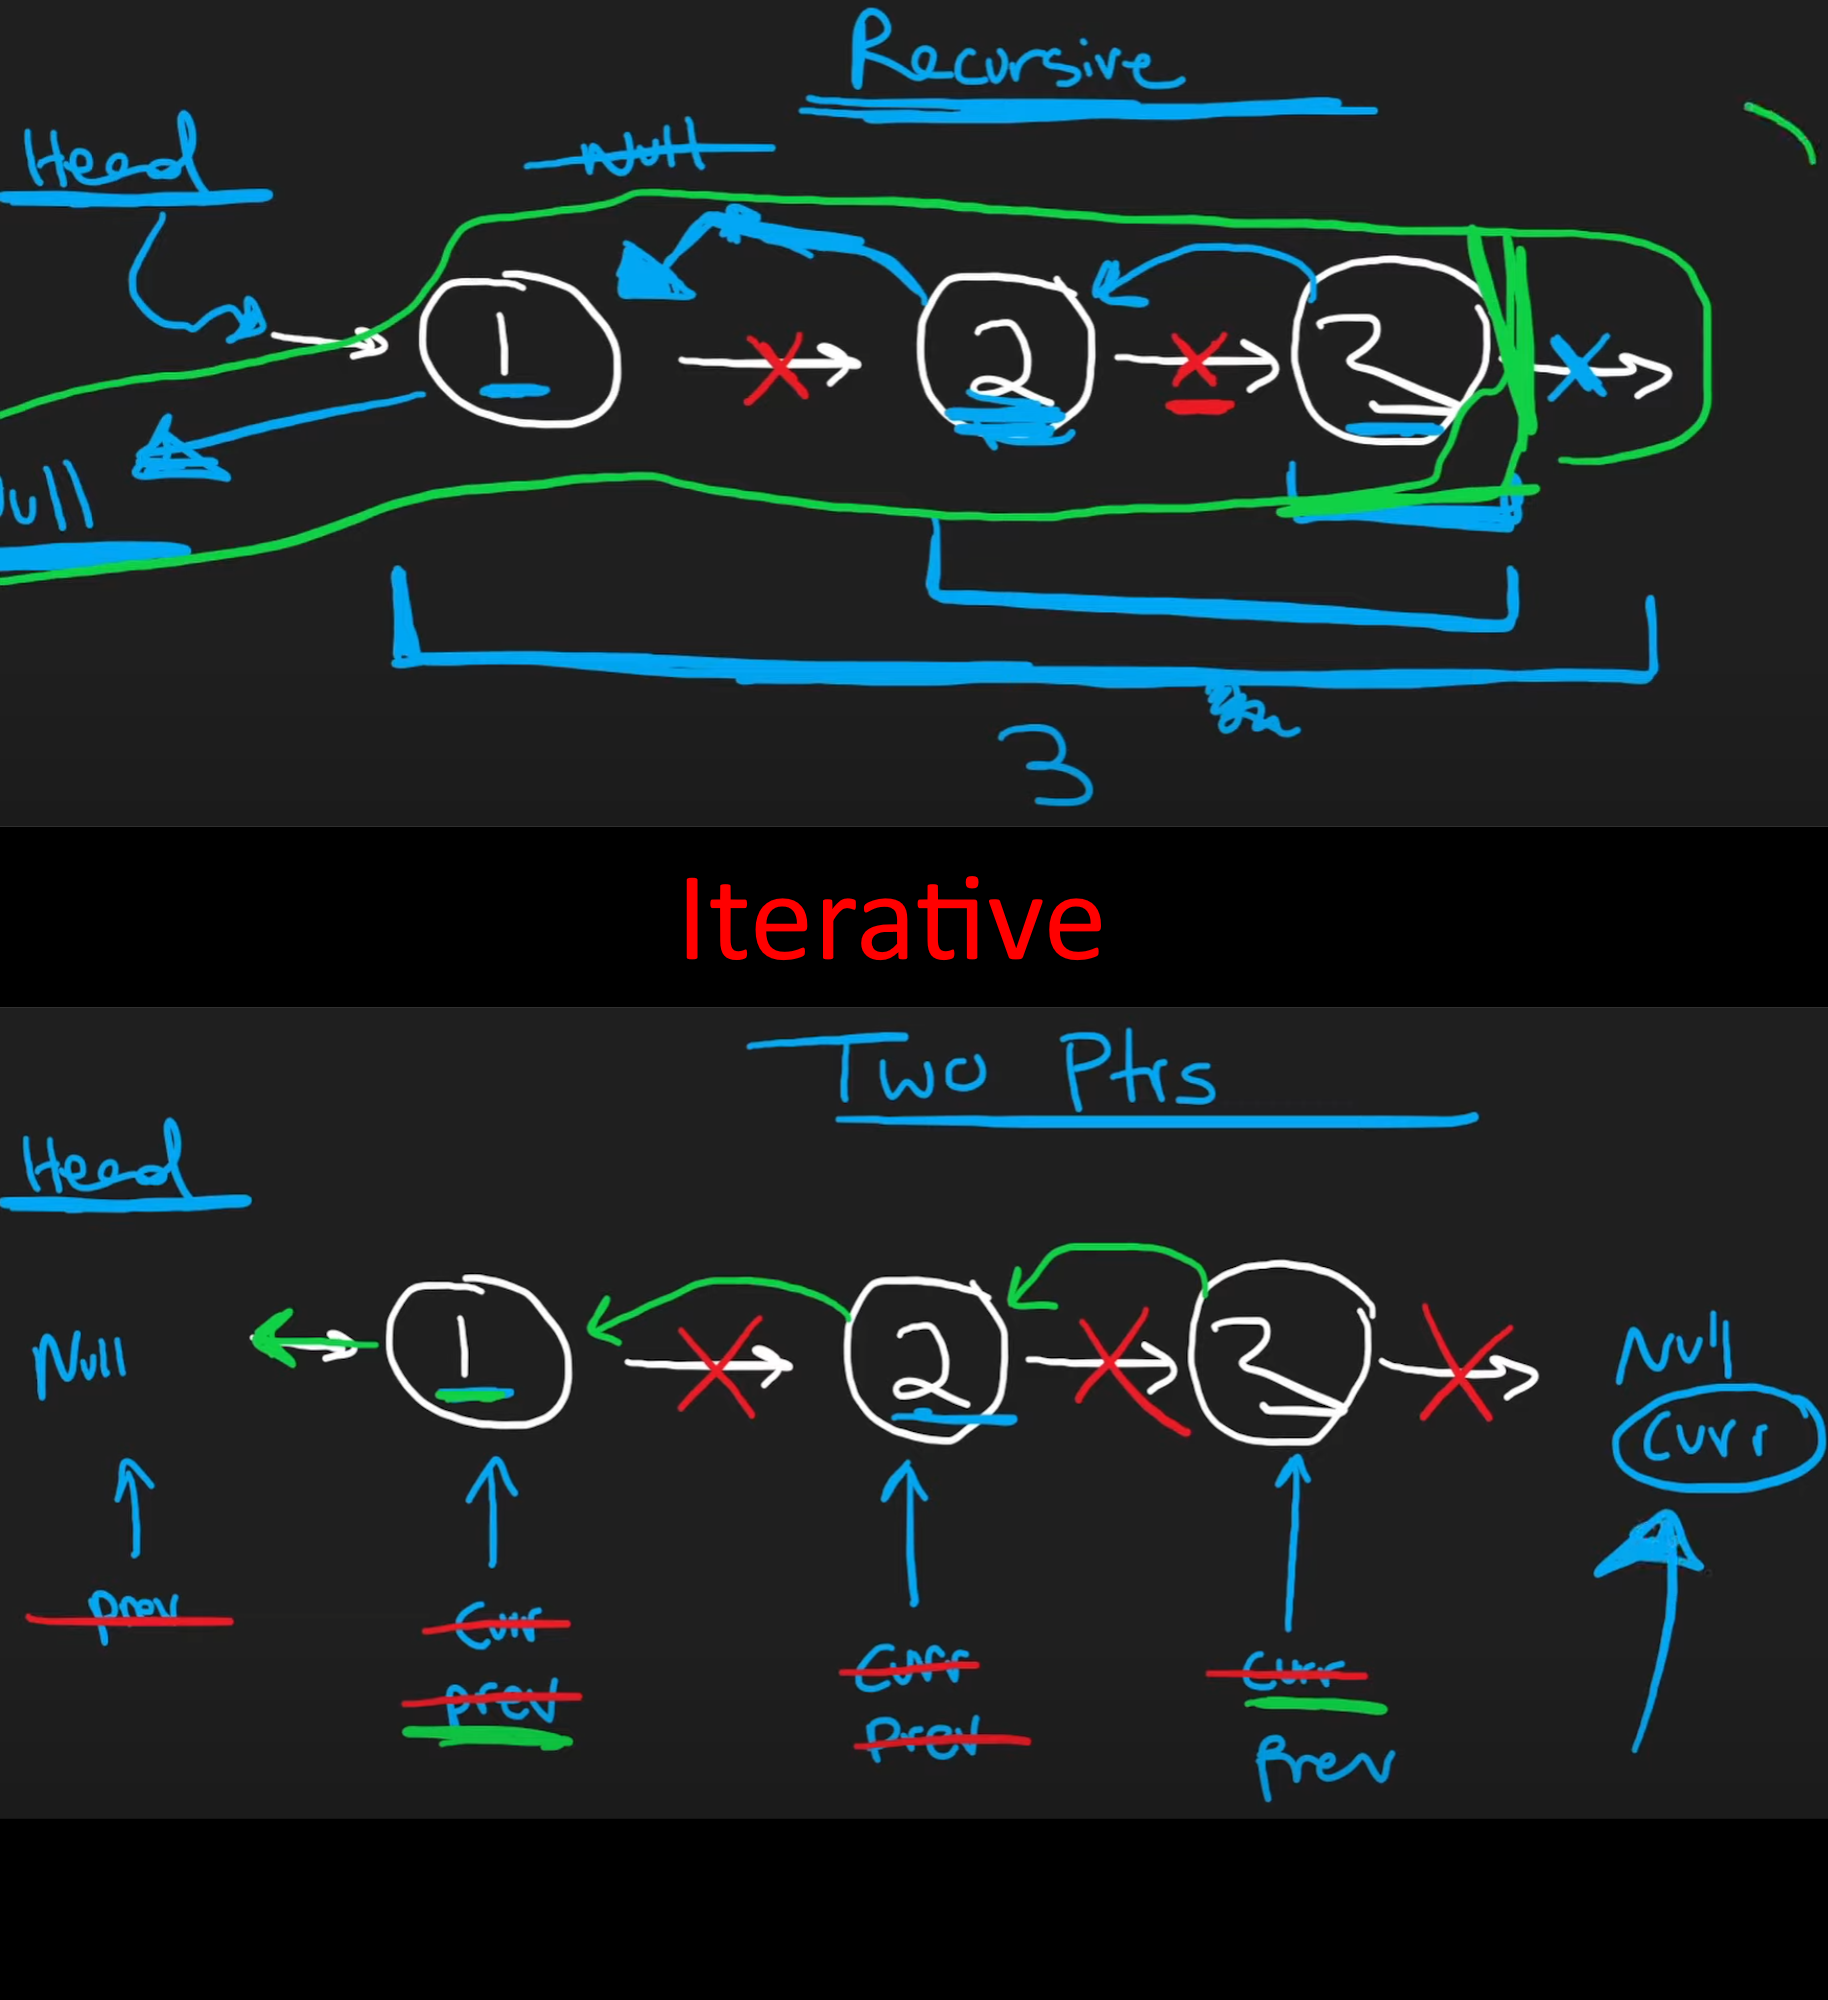 Recursive
Head
null
1 2 3
ull
3
Iterative
Two Ptrs
Head
Null 1 2 3 Null
Curr
prev Curr Curr Curr
prev Prev Prev